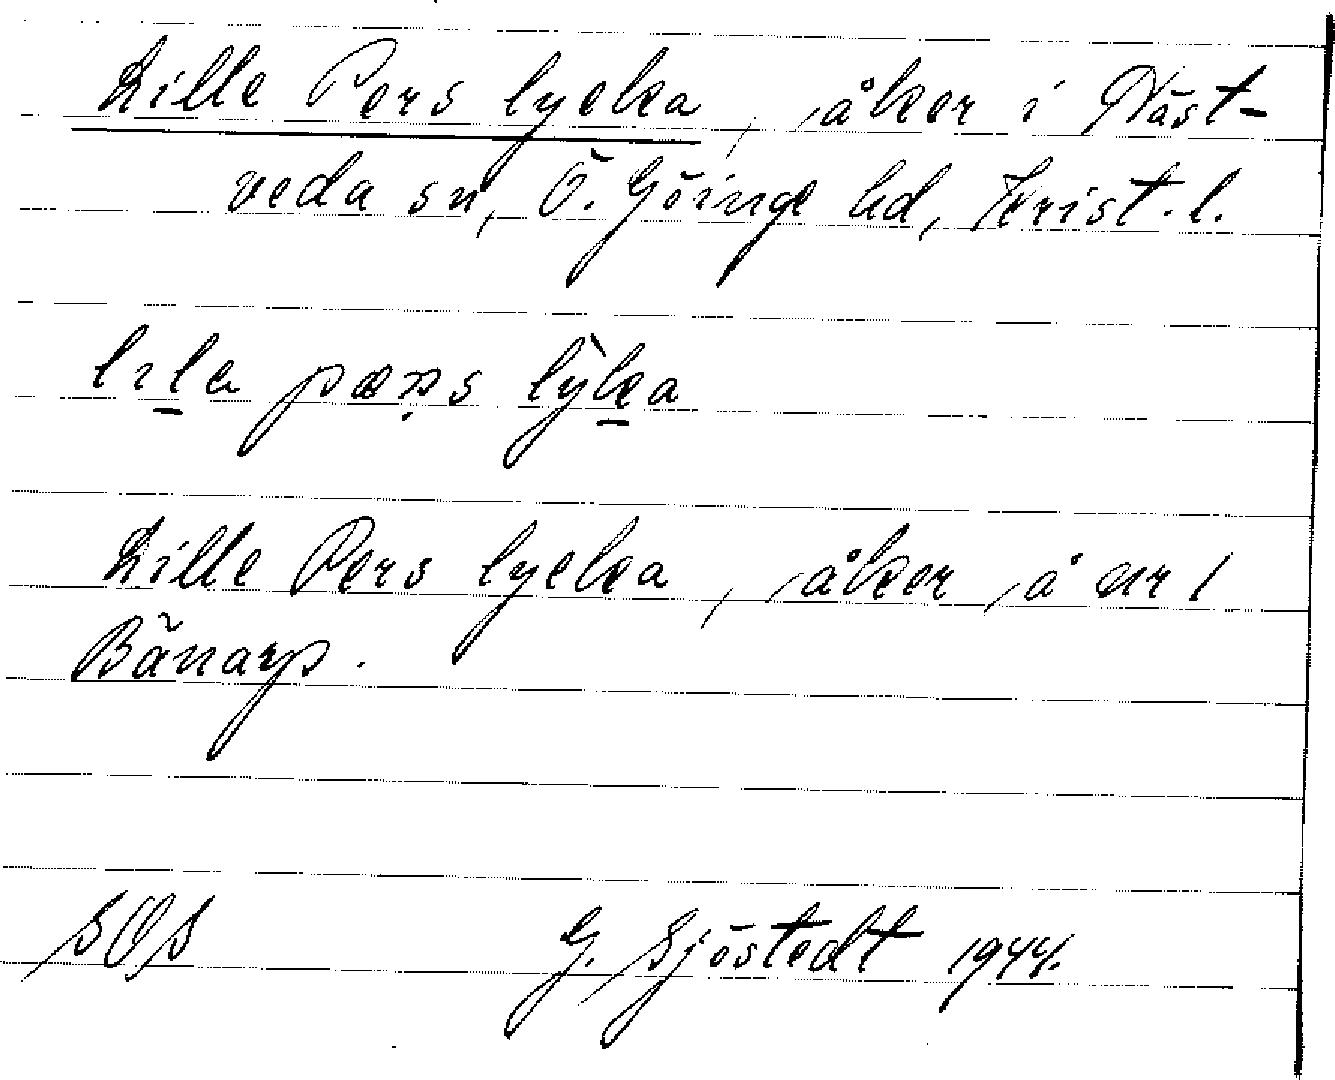 Lille Pers lycka, åker i Näst-
veda sn, Ö. Göinge hd, Krist. l.
lıl̲a pæṇs lỳk̲a
Lille Pers lycka, åker å nr 1
Bänarp.
SOS G. Sjöstedt 1944.